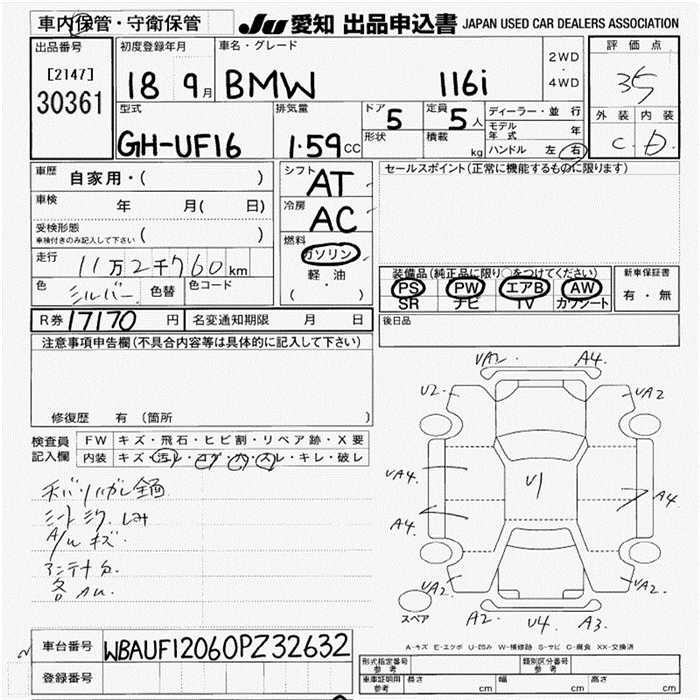 車内保管・守衛保管
JU 愛知 出品申込書 JAPAN USED CAR DEALERS ASSOCIATION
出品番号
[2147]
30361
初度登録年月
18 9月
車名・グレード
BMW 116i
2WD
・
4WD
評価点
35
外装 内装
C D
型式
GH-UF16
排気量
1.59cc
ドア 5
形状
定員 5人
積載 kg
ディーラー・並行
モデル年式 年
ハンドル 左 右
車歴 自家用・( )
車検 年 月( 日)
受検形態
車検付きのみ記入して下さい ( )
走行 11万2千760km
色 シルバー 色替 色コード
シフト AT
冷房 AC
燃料
ガソリン
軽・油
( ・ )
セールスポイント(正常に機能するものに限ります)
装備品(純正品に限り○をつけてください)
PS PW エアB AW
SR ナビ TV カワシート
新車保証書
有・無
R券 17170円 名変通知期限 月 日
後日品
注意事項申告欄(不具合内容等は具体的に記入して下さい)
修復歴 有 (箇所 )
検査員
記入欄
FW キズ・飛石・ヒビ割・リペア跡・X要
内装 キズ・汚レ・コゲ・穴・スレ・キレ・破レ
シート シワ. しみ
A/W キズ.
VA2. A4.
U2. VA2
VA4. U1 A4.
A4.
VA2. VA2.
A2. U4 A3.
スペア
A-キズ E-エクボ U-凹み W-補修跡 S-サビ C-腐食 XX-交換済
車台番号 WBAUF12060PZ32632
登録番号
形式指定番号
参考
類別区分番号
参考
車庫証明用
参考
長さ cm 幅 cm 高さ cm